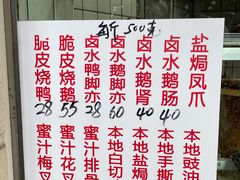 每斤 500克
盐焗凤爪
卤水鹅肠 40
卤水鹅肾 40
卤水鹅脚亦 60
卤水鸭脚亦 28
脆皮烧鹅 55
脆皮烧鸭 28
本地豉油
本地手撕
本地盐焗
本地白切
蜜汁排骨
蜜汁花叉
蜜汁梅叉